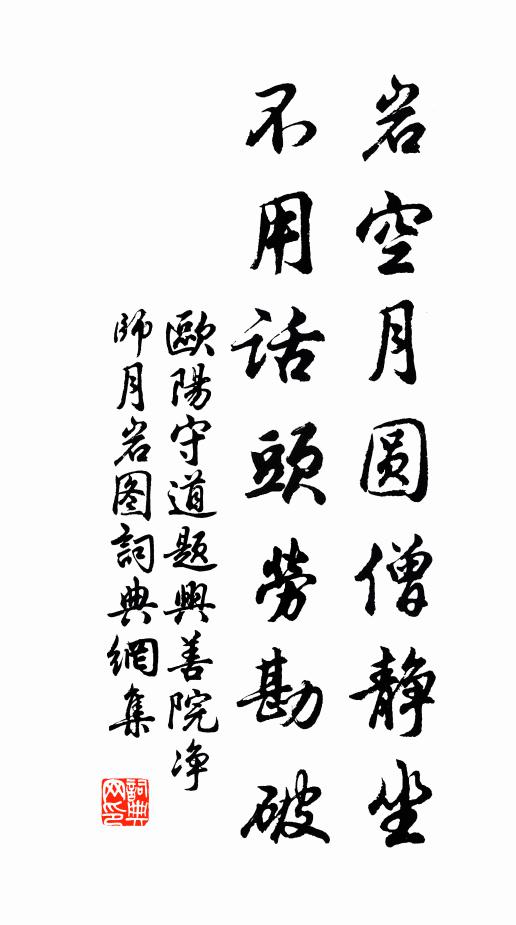 岩空月圆僧静坐
不用話頭勞勘破
歐陽守道題興善院净
師月岩图詞典網集
詞典网印